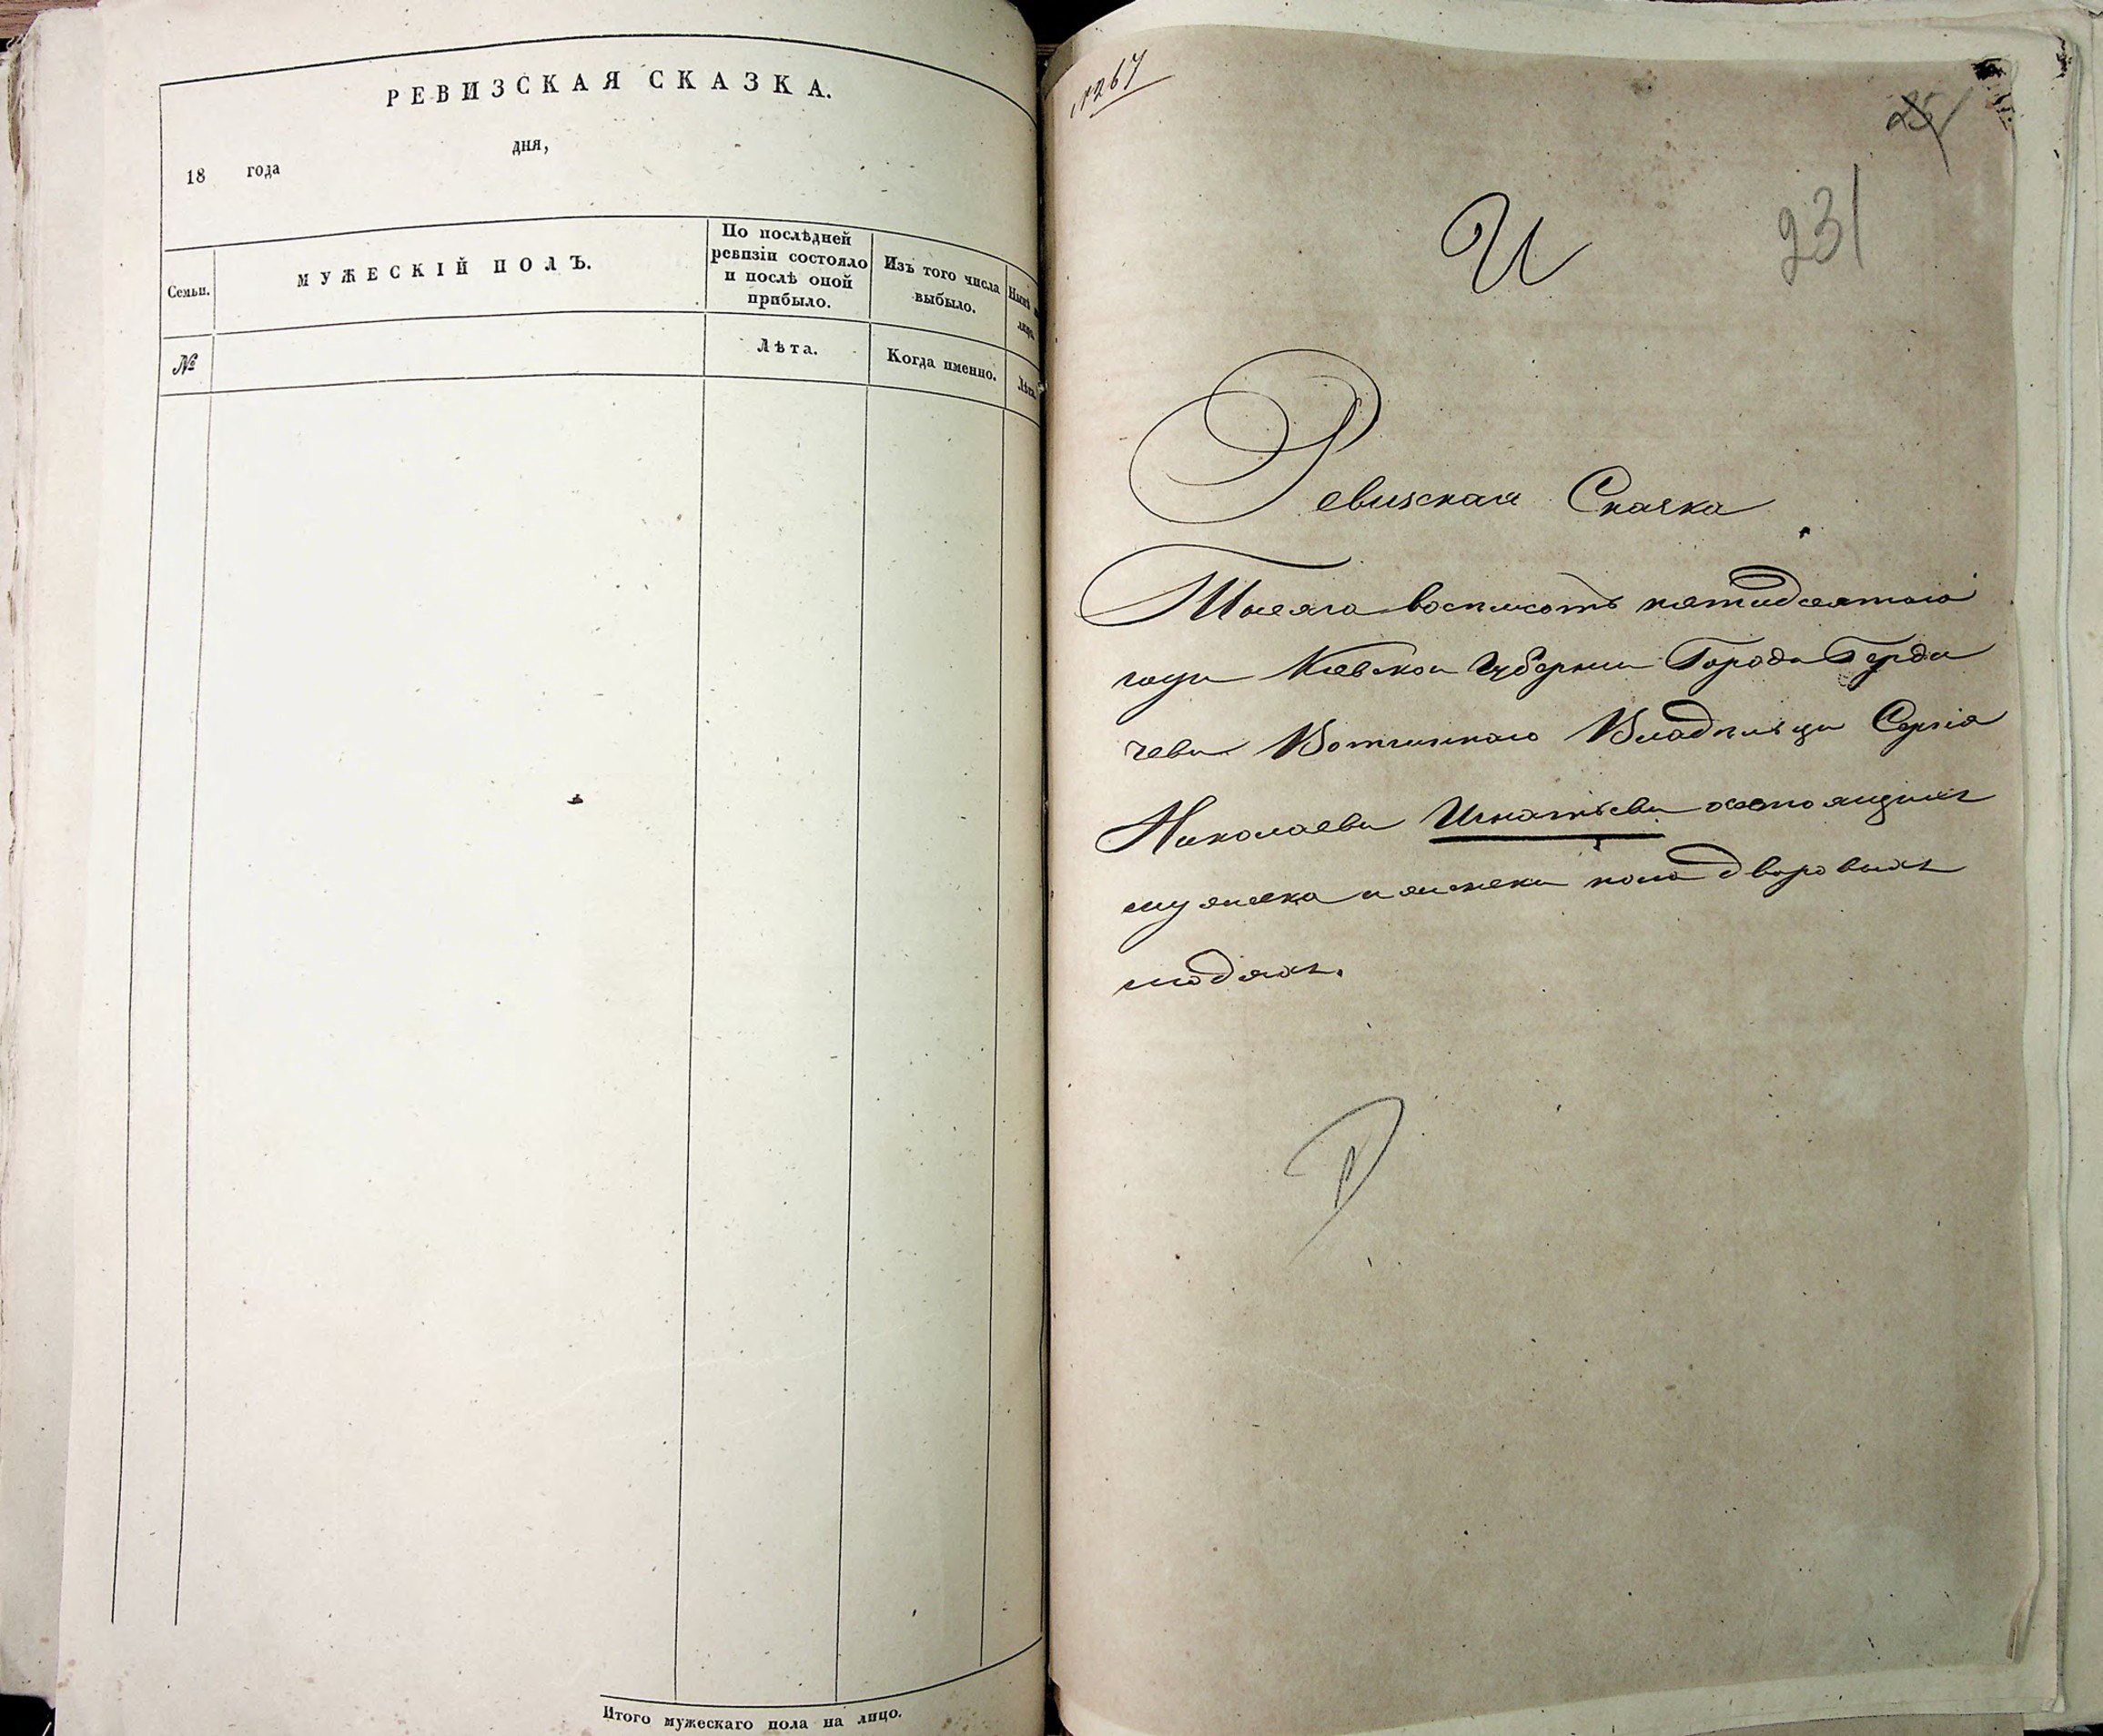 РЕВИЗСКАЯ СКАЗКА.
18 года дня,
Семьи.
МУЖЕСКІЙ ПОЛЪ.
По послѣдней
ревизіи состояло
и послѣ оной
прибыло.
Изъ того числа
выбыло.
Нынѣ
лицо
№
Лѣта.
Когда именно.
Лѣта
Итого мужескаго пола на лицо.
№267
25
231
И
Ревизская Сказка
Тысяча восемсотъ пятидесятого
года Киевской Губернии Города Берди
чева Вотчинного Владельца Сергія
Николаева Игнатьева состоящихъ
мужеска и женска пола дворовыхъ
людяхъ.